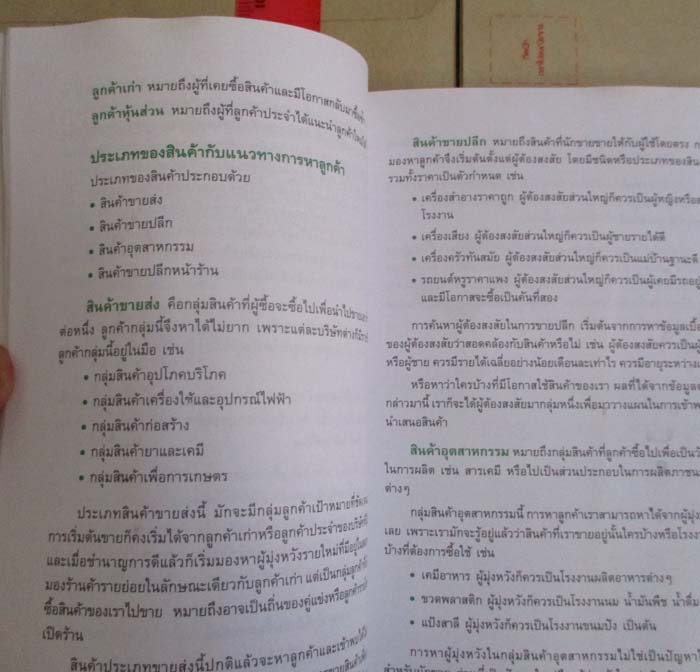 ลูกค้าเก่า หมายถึงผู้ที่เคยซื้อสินค้าและมีโอกาสกลับมาซื้อ
ลูกค้าหุ้นส่วน หมายถึงผู้ที่ลูกค้าประจำได้แนะนำลูกค้า
ประเภทของสินค้ากับแนวทางการหาลูกค้า
ประเภทของสินค้าประกอบด้วย
• สินค้าขายส่ง
• สินค้าขายปลีก
• สินค้าอุตสาหกรรม
• สินค้าขายปลีกหน้าร้าน
สินค้าขายส่ง คือกลุ่มสินค้าที่ผู้ซื้อจะซื้อไปเพื่อนำไป
ต่อหนึ่ง ลูกค้ากลุ่มนี้จึงหาได้ไม่ยาก เพราะแต่ละบริษัทต่างก็
ลูกค้ากลุ่มนี้อยู่ในมือ เช่น
• กลุ่มสินค้าอุปโภคบริโภค
• กลุ่มสินค้าเครื่องใช้และอุปกรณ์ไฟฟ้า
• กลุ่มสินค้าก่อสร้าง
• กลุ่มสินค้ายาและเคมี
• กลุ่มสินค้าเพื่อการเกษตร
ประเภทสินค้าขายส่งนี้ มักจะมีกลุ่มลูกค้าเป้าหมายที่
การเริ่มต้นขายก็คงเริ่มได้จากลูกค้าเก่าหรือลูกค้าประจำของบริษัท
และเมื่อชำนาญการดีแล้วก็เริ่มมองหาผู้มุ่งหวังรายใหม่ที่มีอยู่
มองร้านค้ารายย่อยในลักษณะเดียวกับลูกค้าเก่า แต่เป็นกลุ่มลูกค้า
ซื้อสินค้าของเราไปขาย หมายถึงอาจเป็นถิ่นของคู่แข่งหรือลูกค้า
เปิดร้าน
สินค้าประเภทขายส่งนี้ปกติแล้วจะหาลูกค้าและเข้าพบได้
สินค้าขายปลีก หมายถึงสินค้าที่นักขายขายให้กับผู้ใช้โดยตรง
มองหาลูกค้าจึงเริ่มต้นตั้งแต่ผู้ต้องสงสัย โดยมีชนิดหรือประเภทของ
รวมทั้งราคาเป็นตัวกำหนด เช่น
• เครื่องสำอางราคาถูก ผู้ต้องสงสัยส่วนใหญ่ก็ควรเป็นผู้หญิงหรือ
โรงงาน
• เครื่องเสียง ผู้ต้องสงสัยส่วนใหญ่ก็ควรเป็นผู้ชายรายได้ดี
• เครื่องครัวทันสมัย ผู้ต้องสงสัยส่วนใหญ่ก็ควรเป็นแม่บ้านฐานะดี
• รถยนต์หรูราคาแพง ผู้ต้องสงสัยส่วนใหญ่ก็ควรเป็นผู้เคยมีรถ
และมีโอกาสจะซื้อเป็นคันที่สอง
การค้นหาผู้ต้องสงสัยในการขายปลีก เริ่มต้นจากการหาข้อมูล
ของผู้ต้องสงสัยว่าสอดคล้องกับสินค้าหรือไม่ เช่น ผู้ต้องสงสัยควรเป็น
หรือผู้ชาย ควรมีรายได้เฉลี่ยอย่างน้อยเดือนละเท่าไร ควรมีอายุระหว่าง
หรือหาว่าใครบ้างที่มีโอกาสใช้สินค้าของเรา ผลที่ได้จากข้อมูล
กล่าวมานี้ เราก็จะได้ผู้ต้องสงสัยมากลุ่มหนึ่งเพื่อมาวางแผนในการ
นำเสนอสินค้า
สินค้าอุตสาหกรรม หมายถึงกลุ่มสินค้าที่ลูกค้าซื้อไปเพื่อเป็น
ในการผลิต เช่น สารเคมี หรือไปเป็นส่วนประกอบในการผลิต
ต่างๆ
กลุ่มสินค้าอุตสาหกรรมนี้ การหาลูกค้าเราสามารถหาได้จาก
เลย เพราะเรามักจะรู้อยู่แล้วว่าสินค้าที่เราขายอยู่นั้นใครบ้างหรือ
บ้างที่ต้องการซื้อใช้ เช่น
• เคมีอาหาร ผู้มุ่งหวังก็ควรเป็นโรงงานผลิตอาหารต่างๆ
• ขวดพลาสติก ผู้มุ่งหวังก็ควรเป็นโรงงานนม น้ำมันพืช
• แป้งสาลี ผู้มุ่งหวังก็ควรเป็นโรงงานขนมปัง เป็นต้น
การหาผู้มุ่งหวังในกลุ่มสินค้าอุตสาหกรรมไม่ใช่เป็น